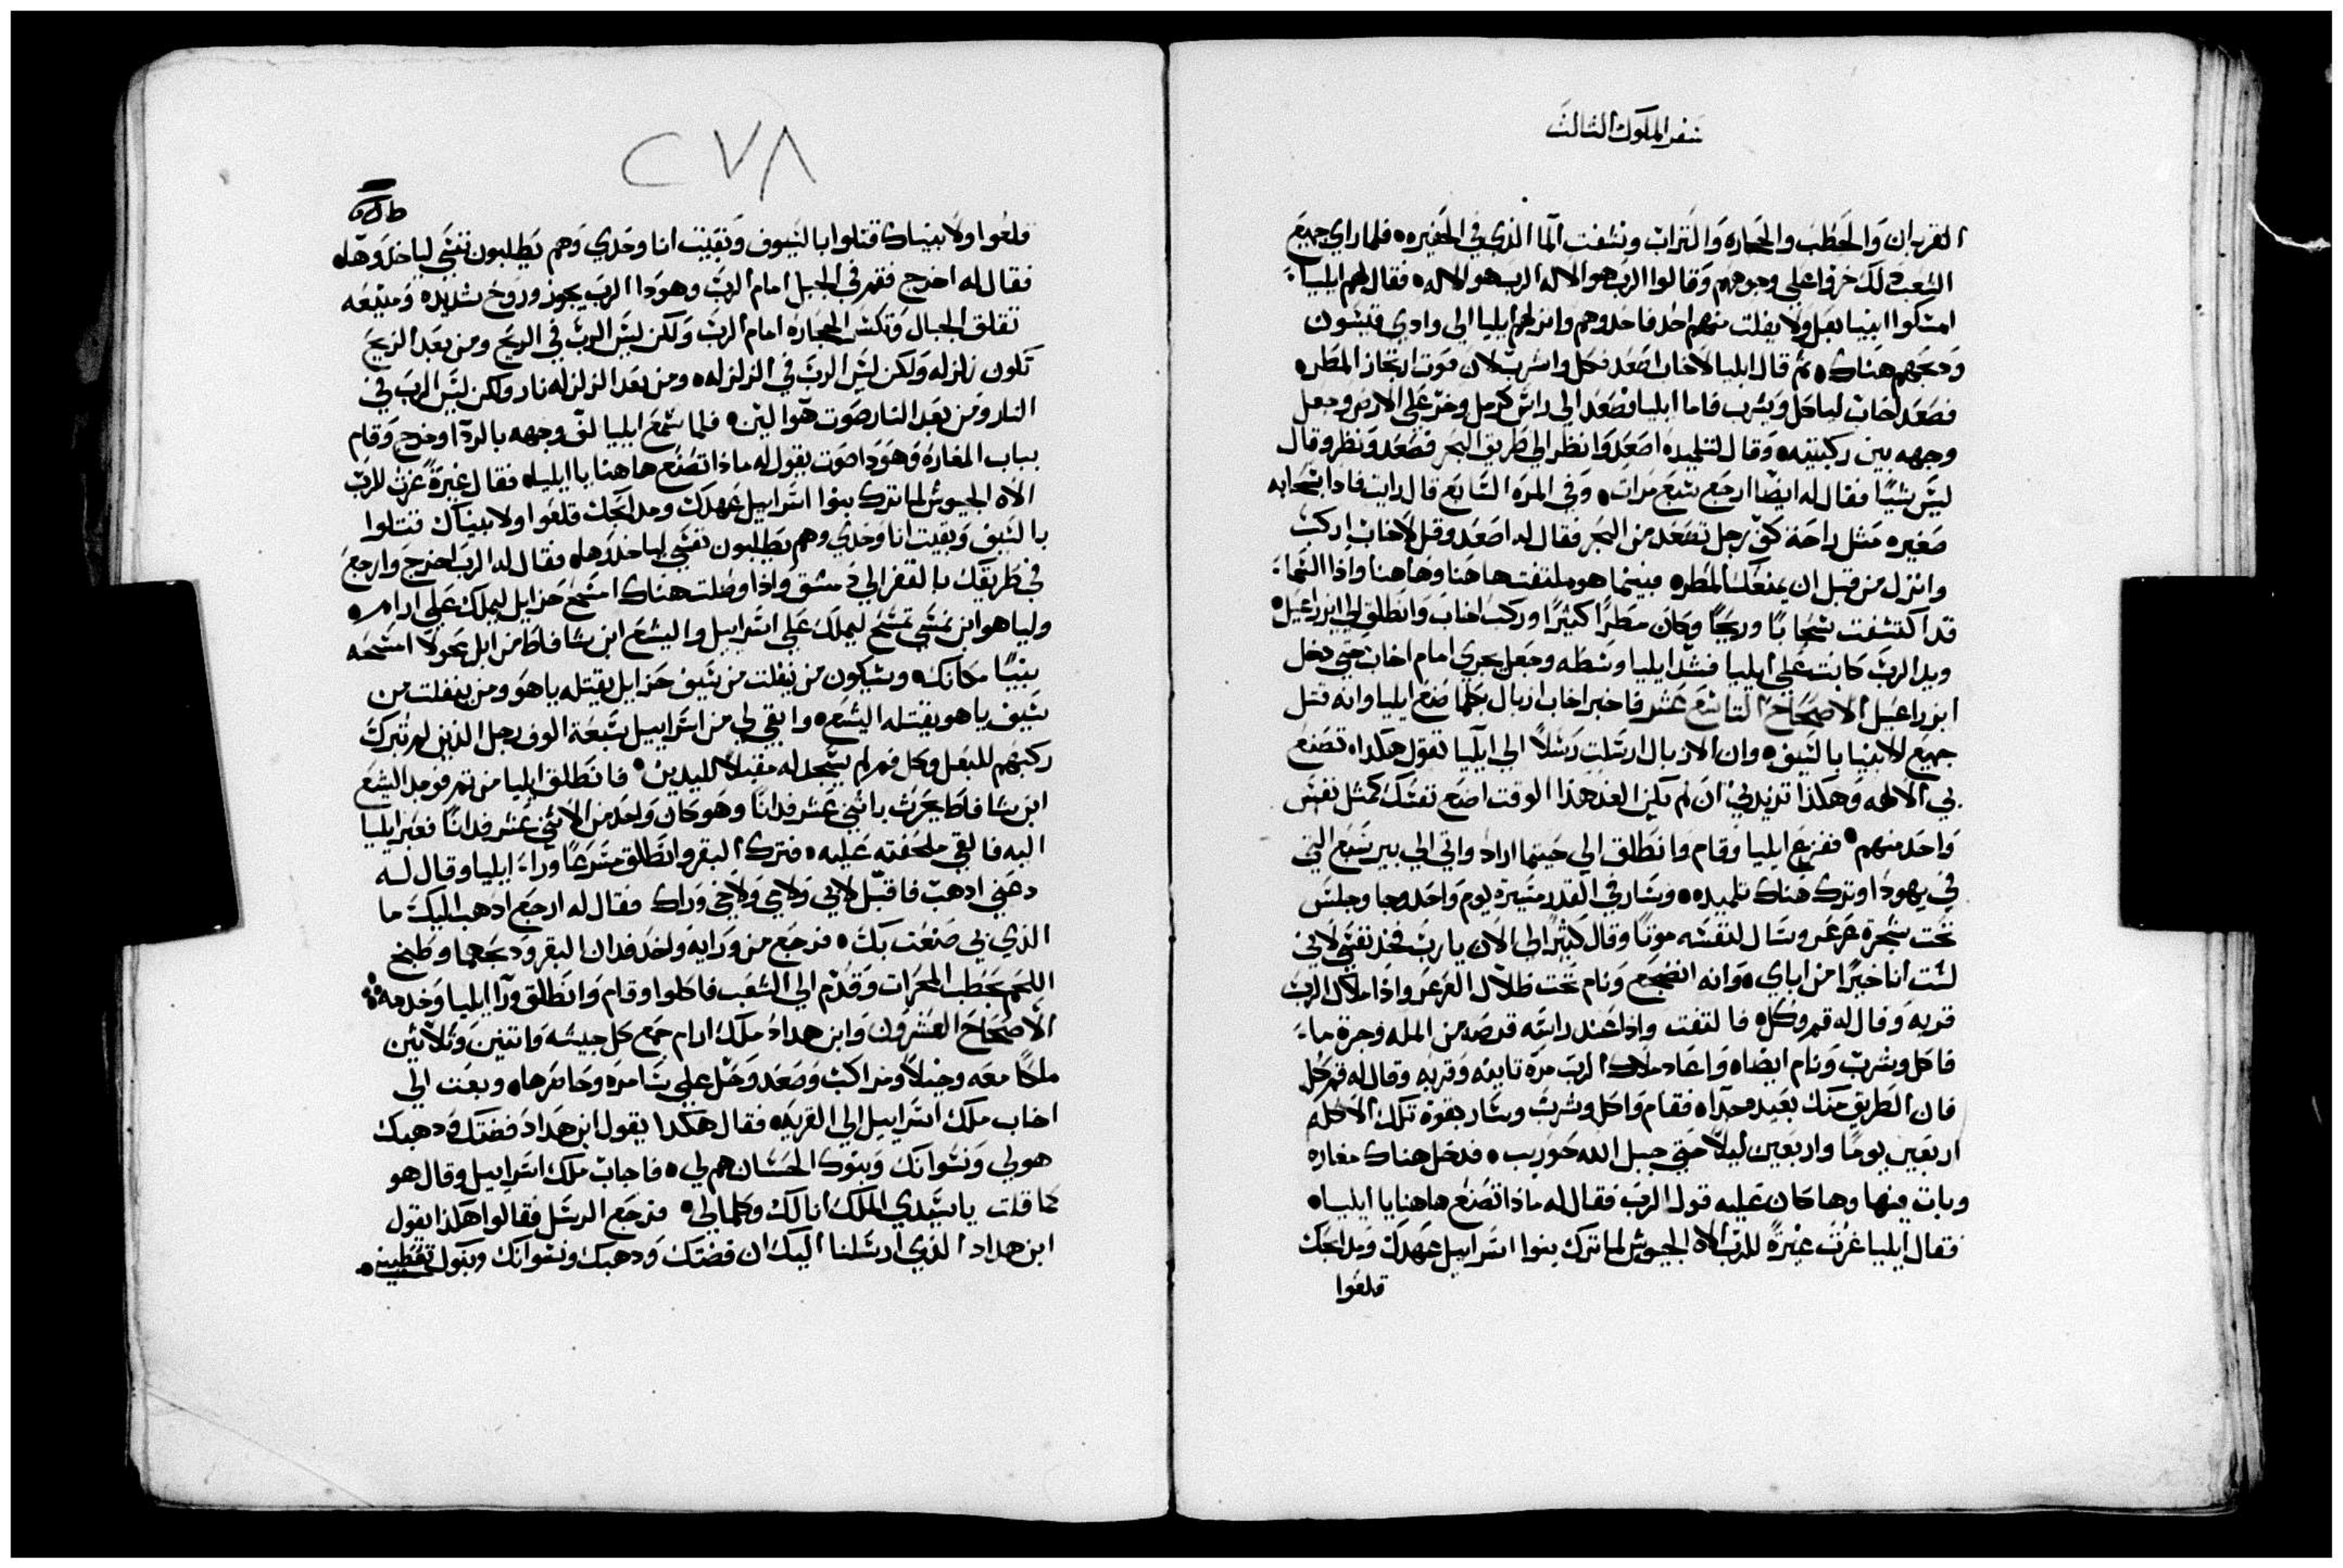 سفر الملوك الثالث
القربان والحطب والحجاره والتراب ونشفت الما الذي في الحفيره فلما راي جميع
الشعب ذلك خروا علي وجوههم وقالوا الرب هو الاله الرب هو الاله فقال لهم ايليا
امسكوا انبيا بعل ولا يفلت منهم احد فاخدوهم وانزلهم ايليا الي وادي قيشون
ودبحهم هناك ثم قال ايليا لاخاب اصعد فكل واشرب لان صوت اتخاز المطر
فصعد اخاب لياكل ويشرب فاما ايليا فصعد الي راس كرمل وخر علي الارض وجعل
وجهه بين ركبتيه وقال لتلميده اصعد وانظر الي طريق البحر فصعد ونظر وقال
ليس شيا فقال له ايضا ارجع سبع مرات وفي المره السابع قال رايت فادا سحابه
صغيره مثل راحة كف رجل تصعد من البحر فقال له اصعد وقل لاخاب اركب
وانزل من قبل ان يمنعك المطر فبينما هو ملتفت هاهنا وهاهنا واذا السماء
قد اكتشفت سحابا وريحا وكان مطرا كثيرا وركب اخاب وانطلق الي ايزراعيل
ويد الرب كانت علي ايليا فشد ايليا وسطه وجعل يجري امام اخاب حتي دخل
ايزراعيل الاصحاح التاسع عشر فاخبر اخاب ازبال بكلما صنع ايليا وانه قتل
جميع الانبيا بالسيف وان الازبال ارسلت رسلا الي ايليا تقول هكدا تصنع
بي الالهه وهكذا تزيدني ان لم يكن الغد هذا الوقت اضع نفسك كمثل نفس
واحد منهم ففزع ايليا وقام وانطلق الي حيثما اراد واتي الي بير سبع التي
في يهودا وترك هناك تلميده وسار في القفر مسيرة يوم واحد وجا وجلس
تحت شجرة عرعر وسال لنفسه موتا وقال كثيرا لي الان يا رب فخد نفسي لاني
لست انا خيرا من اباي وانه انضجع ونام تحت ظلال العرعر واذا ملاك الرب
قربه وقال له قم وكل فالتفت واذا عند راسه قرصه من المله وجرة ماء
فاكل وشرب ونام ايضا واعاد ملاك الرب مرة تانيه وقربه وقال له قم كل
فان الطريق منك بعيد جدا فقام واكل وشرب وسار بقوة تلك الاكله
اربعين يوما واربعين ليلا حتي جبل الله حوريب فدخل هناك مغاره
وبات فيها وها كان عليه قول الرب فقال له ماذا تصنع هاهنا يا ايليا
فقال ايليا غرت غيرة للرب الاه الجيوش لما ترك بنوا اسراييل عهدك ومدابحك
قلعوا
٢٧٨
قلعوا ولانبياك قتلوا بالسيوف وبقيت انا وحدي وهم يطلبون نفسي لياخدوها
فقال له اخرج فقم في الجبل امام الرب وهودا الرب يجوز وروح شديده ومنيعه
تفلق الجبال وتكسر الحجاره امام الرب ولكن ليس الرب في الريح ومن بعد الريح
تكون زلزله ولكن ليس الرب في الزلزله ومن بعد الزلزله نار ولكن ليس الرب في
النار ومن بعد النار صوت هوا لين فلما سمع ايليا لف وجهه بالردا وخرج وقام
بباب المغاره وهودا صوت يقول له ماذا تصنع هاهنا يا ايليا فقال غيرة غرت للرب
الاه الجيوش لما ترك بنوا اسراييل عهدك ومدابحك قلعوا ولانبياك قتلوا
بالسيف وبقيت انا وحدي وهم يطلبون نفسي لياخدوها فقال له الرب اخرج وارجع
في طريقك بالقفر الي دمشق واذا وصلت هناك امسح حزايل ليملك علي ارام
ولياهو ابن نمسي تمسح ليملك علي اسراييل واليشع ابن شافاط من ابل محولا امسحه
نبيا مكانك وسيكون من يفلت من سيف حزايل يقتله ياهو ومن ينفلت من
سيف ياهو يقتله اليشع وابقي لي من اسراييل سبعة الوف رجل الذين لم تبرك
ركبهم للبعل وكل فم لم يسجد له مقبلا لليدين فانطلق ايليا من تم فوجد اليشع
ابن شافاط يحرث باثني عشر فدانا وهو كان واحد من الاثني عشر فدانا فعبر ايليا
اليه فالقي ملحفته عليه فترك البقر وانطلق مسرعا وراء ايليا وقال له
دعني ادهب فاقبل لابي ولامي ولاجي وراك فقال له ارجع ادهب اليك ما
الذي لي صنعت بك فرجع من ورايه واخد فدان البقر ودبحهما وطبخ
اللحم بحطب المحرات وقدم الي الشعب فاكلوا وقام وانطلق ورا ايليا وخدمه
الاصحاح العشرون وابن هداد ملك ارام جمع كل جيشه واتنين وتلاتين
ملكا معه وخيلا ومراكب وصعد وحل علي سامره وحاصرها وبعت الي
اخاب ملك اسراييل الي القريه فقال هكدا يقول ابن هداد فضتك ودهبك
هو لي ونسوانك وبنوك الحسان هم لي فاجاب ملك اسراييل وقال هو
كما قلت يا سيدي الملك انا لك وكلما لي فرجع الرسل فقالوا هكذا يقول
ابن هداد الذي ارسلنا اليك ان فضتك ودهبك ونسوانك وبنوك تعطيني